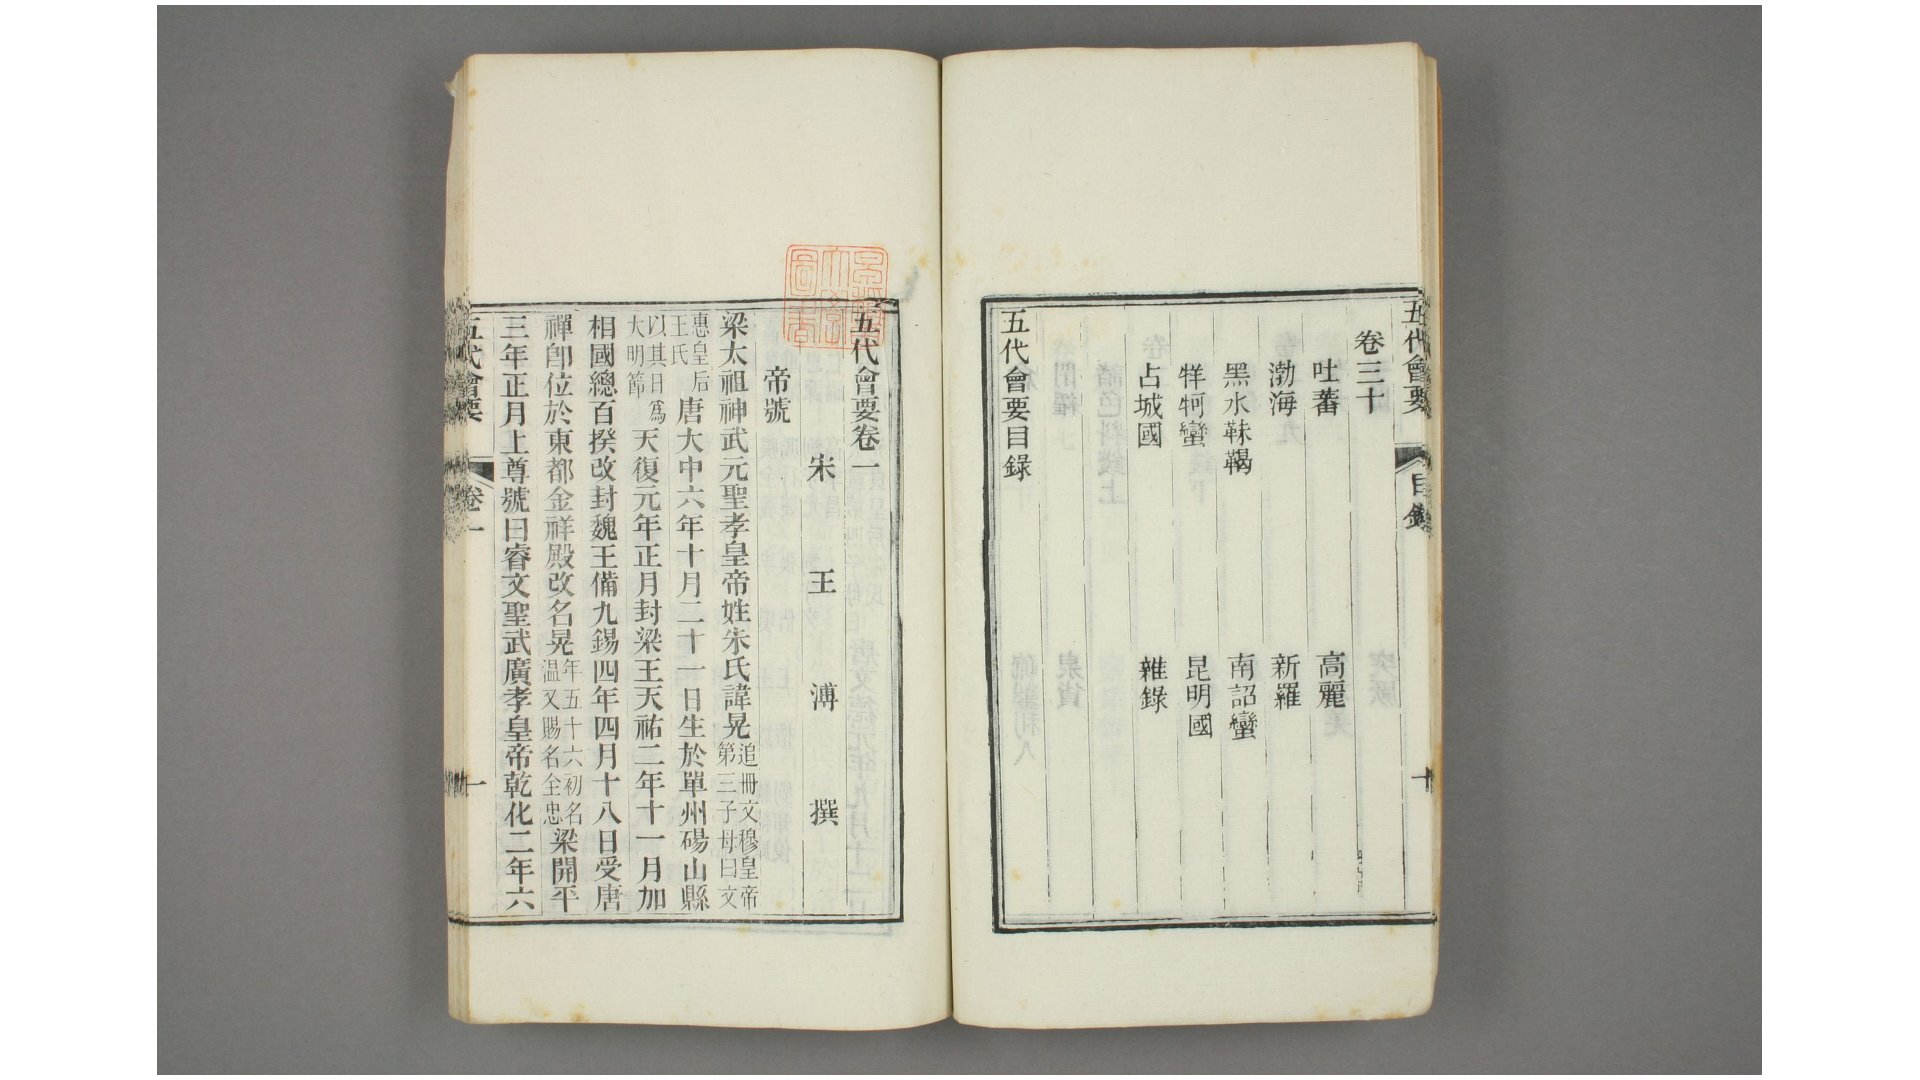 五代會要 目錄 十
卷三十
吐蕃 高麗
渤海 新羅
黑水靺鞨 南詔蠻
牂牁蠻 昆明國
占城國 雜錄
五代會要目錄
五代會要卷一
宋 王 溥 撰
帝號
梁太祖神武元聖孝皇帝姓朱氏諱晃追冊文穆皇帝第三子母曰文
惠皇后王氏唐大中六年十月二十一日生於單州碭山縣
以其日爲大明節天復元年正月封梁王天祐二年十一月加
相國總百揆改封魏王備九錫四年四月十八日受唐
禪卽位於東都金祥殿改名晃年五十六初名温又賜名全忠梁開平
三年正月上尊號曰睿文聖武廣孝皇帝乾化二年六
五代會要 卷一 一